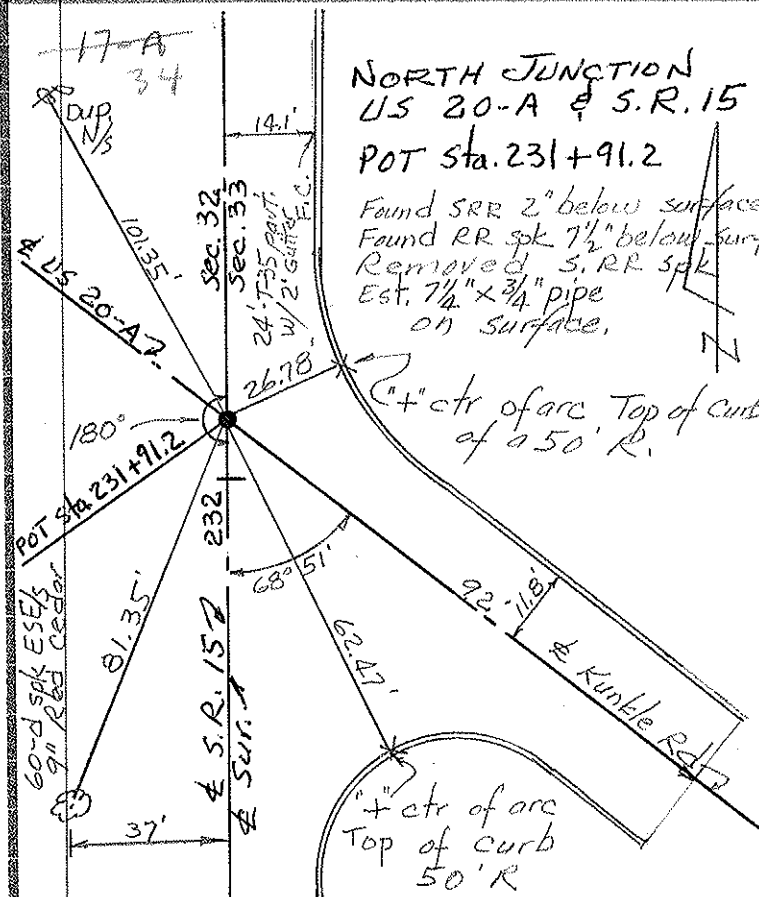 17-A
34
Dup.
N/S
NORTH JUNCTION
US 20-A & S.R. 15
POT Sta. 231+91.2
Found SRR 2" below surface
Found RR spk 7½" below surf
Removed S. RR spk
Est. 7¼" x ¾" pipe
on surface.
N
14.1'
Sec. 32
Sec. 33
24' T-35 pav't.
W/ 2' Gutter
F.C.
101.35'
℄ US 20-A
26.78'
"+" ctr of arc Top of Curb
of a 50' R.
180°
POT Sta 231+91.2
232
68° 51'
92'
11.8'
℄ Kunkle Rd
60-d spk ESE/S
9" Red Cedar
81.35'
62.47'
℄ S.R. 15
℄ Sur.
37'
"+" ctr of arc
Top of curb
50' R